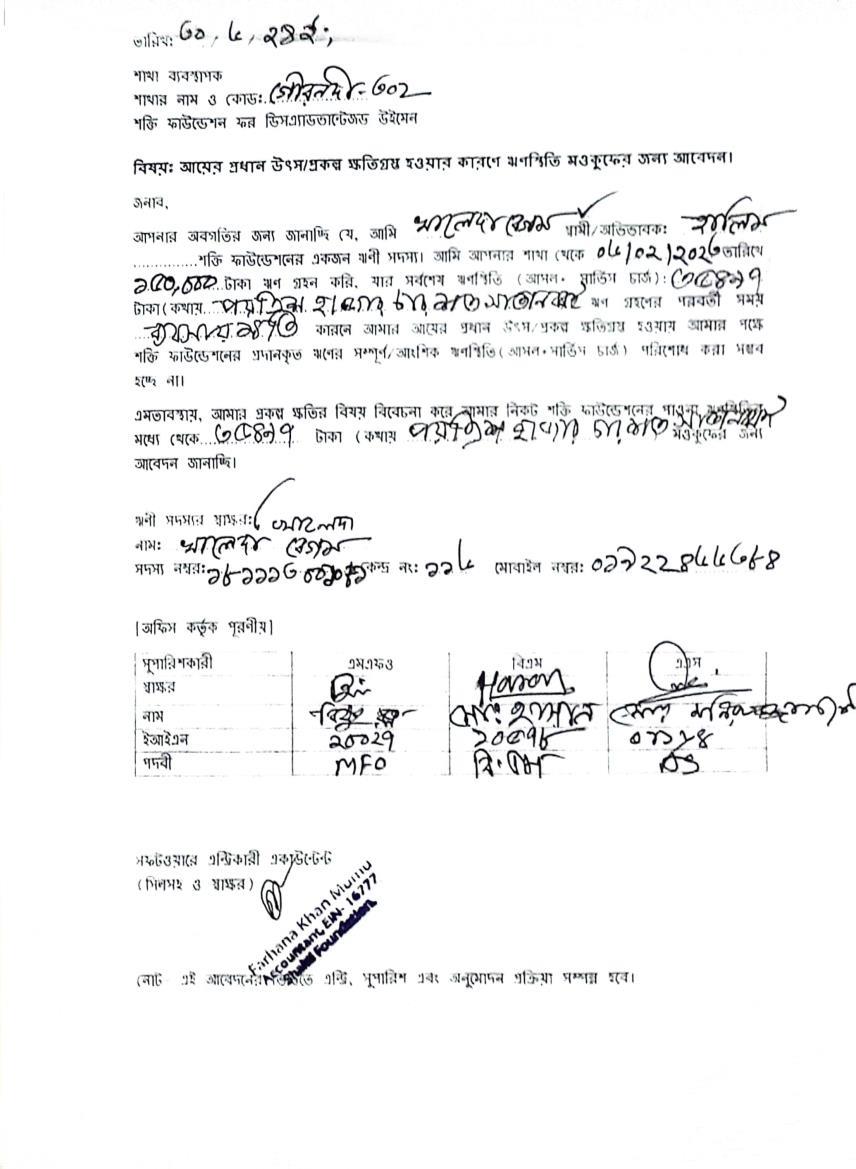 তারিখ: ৩০, ৬, ২৪ইং;
শাখা ব্যবস্থাপক
শাখার নাম ও কোড: গৌরনদী-৩০২
শক্তি ফাউন্ডেশন ফর ডিসএ্যাডভান্টেজড উইমেন
বিষয়: আয়ের প্রধান উৎস/প্রকল্প ক্ষতিগ্রস্থ হওয়ার কারণে ঋণস্থিতি মওকুফের জন্য আবেদন।
জনাব,
আপনার অবগতির জন্য জানাচ্ছি যে, আমি খালেদা বেগম স্বামী/অভিভাবক: হালিম
শক্তি ফাউন্ডেশনের একজন ঋণী সদস্য। আমি আপনার শাখা থেকে ০৬/০২/২০২৩ তারিখে
টাকা ঋণ গ্রহন করি, যার সর্বশেষ ঋণস্থিতি (আসল+ সার্ভিস চার্জ): ৩৫৪৯৭
টাকা (কথায় পয়ত্রিশ হাজার চার শত সাতানব্বই ঋণ গ্রহণের পরবর্তী সময়
ব্যবসায় ক্ষতি কারনে আমার আয়ের প্রধান উৎস/প্রকল্প ক্ষতিগ্রস্থ হওয়ায় আমার পক্ষে
শক্তি ফাউন্ডেশনের প্রদানকৃত ঋণের সম্পূর্ণ/আংশিক ঋণস্থিতি (আসল+সার্ভিস চার্জ) পরিশোধ করা সম্ভব
হচ্ছে না।
এমতাবস্থায়, আমার প্রকল্প ক্ষতির বিষয় বিবেচনা করে আমার নিকট শক্তি ফাউন্ডেশনের পাওনা ঋণস্থিতির
মধ্যে থেকে ৩৫৪৯৭ টাকা (কথায় পয়ত্রিশ হাজার চার শত সাতানব্বই মওকুফের জন্য
আবেদন জানাচ্ছি।
ঋণী সদস্যর স্বাক্ষর: খালেদা
নাম: খালেদা বেগম
সদস্য নম্বর: কেন্দ্র নং: ১১৬ মোবাইল নম্বর:
[অফিস কর্তৃক পূরণীয়]
সুপারিশকারী এমএফও বিএম এএস
স্বাক্ষর Haron
নাম মোঃ হাসান মোঃ
ইআইএন ২০০২৭
পদবী MFO বি:এম AS
সফটওয়্যারে এন্ট্রিকারী একাউন্টেন্ট
(সিলসহ ও স্বাক্ষর)
Farhana Khan Mumu
Accountant, EIN- 16777
Shakti Foundation
নোট এই আবেদনের ভিত্তিতে এন্ট্রি, সুপারিশ এবং অনুমোদন প্রক্রিয়া সম্পন্ন হবে।